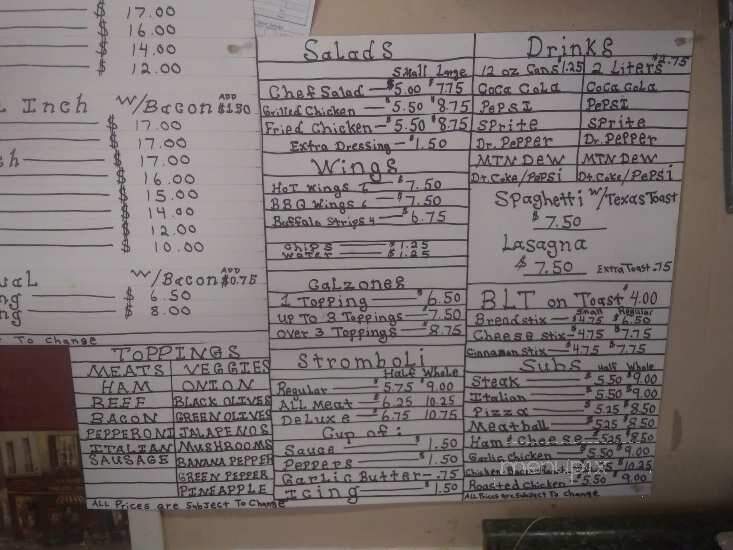 $ 17.00
$ 16.00
$ 14.00
$ 12.00
Inch W/Bacon ADD $1.50
$ 17.00
$ 17.00
$ 17.00
$ 16.00
$ 15.00
$ 14.00
$ 12.00
$ 10.00
W/Bacon ADD $0.75
$ 6.50
$ 8.00
To Change
TOPPINGS
MEATS VEGGIES
HAM ONION
BEEF BLACK OLIVES
BACON GREEN OLIVES
PEPPERONI JALAPENOS
ITALIAN MUSHROOMS
SAUSAGE BANANA PEPPER
GREEN PEPPER
PINEAPPLE
ALL Prices are Subject To Change
Salads
Small Large
Chef Salad $5.00 $7.75
Grilled Chicken $5.50 $8.75
Fried Chicken $5.50 $8.75
Extra Dressing $1.50
Wings
Hot Wings 6 $7.50
BBQ Wings 6 $7.50
Buffalo Strips 4 $6.75
Chips $1.25
Water $1.25
Calzones
1 Topping $6.50
up To 3 Toppings $7.50
over 3 Toppings $8.75
Stromboli
Half Whole
Regular $5.75 $9.00
ALL Meat $6.25 10.25
Deluxe $6.75 10.75
Cup of:
Sauce $1.50
Peppers $1.50
Garlic Butter .75
Icing $1.50
Drinks
12 oz Cans $1.25 2 Liters $2.75
Coca Cola Coca Cola
Pepsi Pepsi
Sprite Sprite
Dr. Pepper Dr. Pepper
MTN Dew MTN Dew
Dt. Coke/Pepsi Dt. Coke/Pepsi
Spaghetti W/Texas Toast
$7.50
Lasagna
$7.50 Extra Toast .75
BLT on Toast $4.00
Small Regular
Breadstix $4.75 $6.50
Cheese stix $4.75 $7.75
Cinnamon stix $4.75 $7.75
Subs Half Whole
Steak $5.50 $9.00
Italian $5.50 $9.00
Pizza $5.25 $8.50
Meatball $5.25 $8.50
Ham & Cheese 5.25 $8.50
Garlic Chicken $5.50 $9.00
Chicken 10.25
Roasted Chicken $5.50 $9.00
All Prices are Subject To Change
menupix